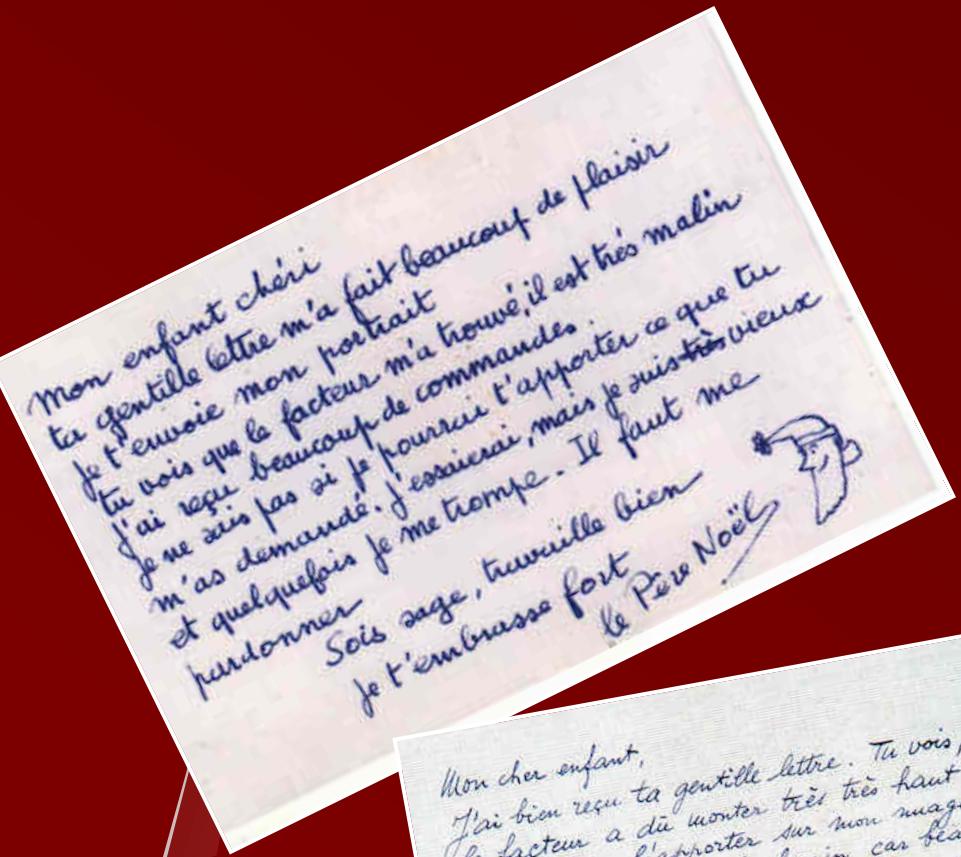 Mon enfant chéri
ta gentille lettre m'a fait beaucoup de plaisir
Je t'envoie mon portrait
tu vois que le facteur m'a trouvé, il est très malin
J'ai reçu beaucoup de commandes.
Je ne sais pas si je pourrai t'apporter ce que tu
m'as demandé. J'essaierai, mais je suis très vieux
et quelquefois je me trompe. Il faut me
pardonner
Sois sage, travaille bien
Je t'embrasse fort
le Père Noël
Mon cher enfant,
J'ai bien reçu ta gentille lettre. Tu vois,
facteur a dû monter très très haut
l'apporter sur mon nuage
car